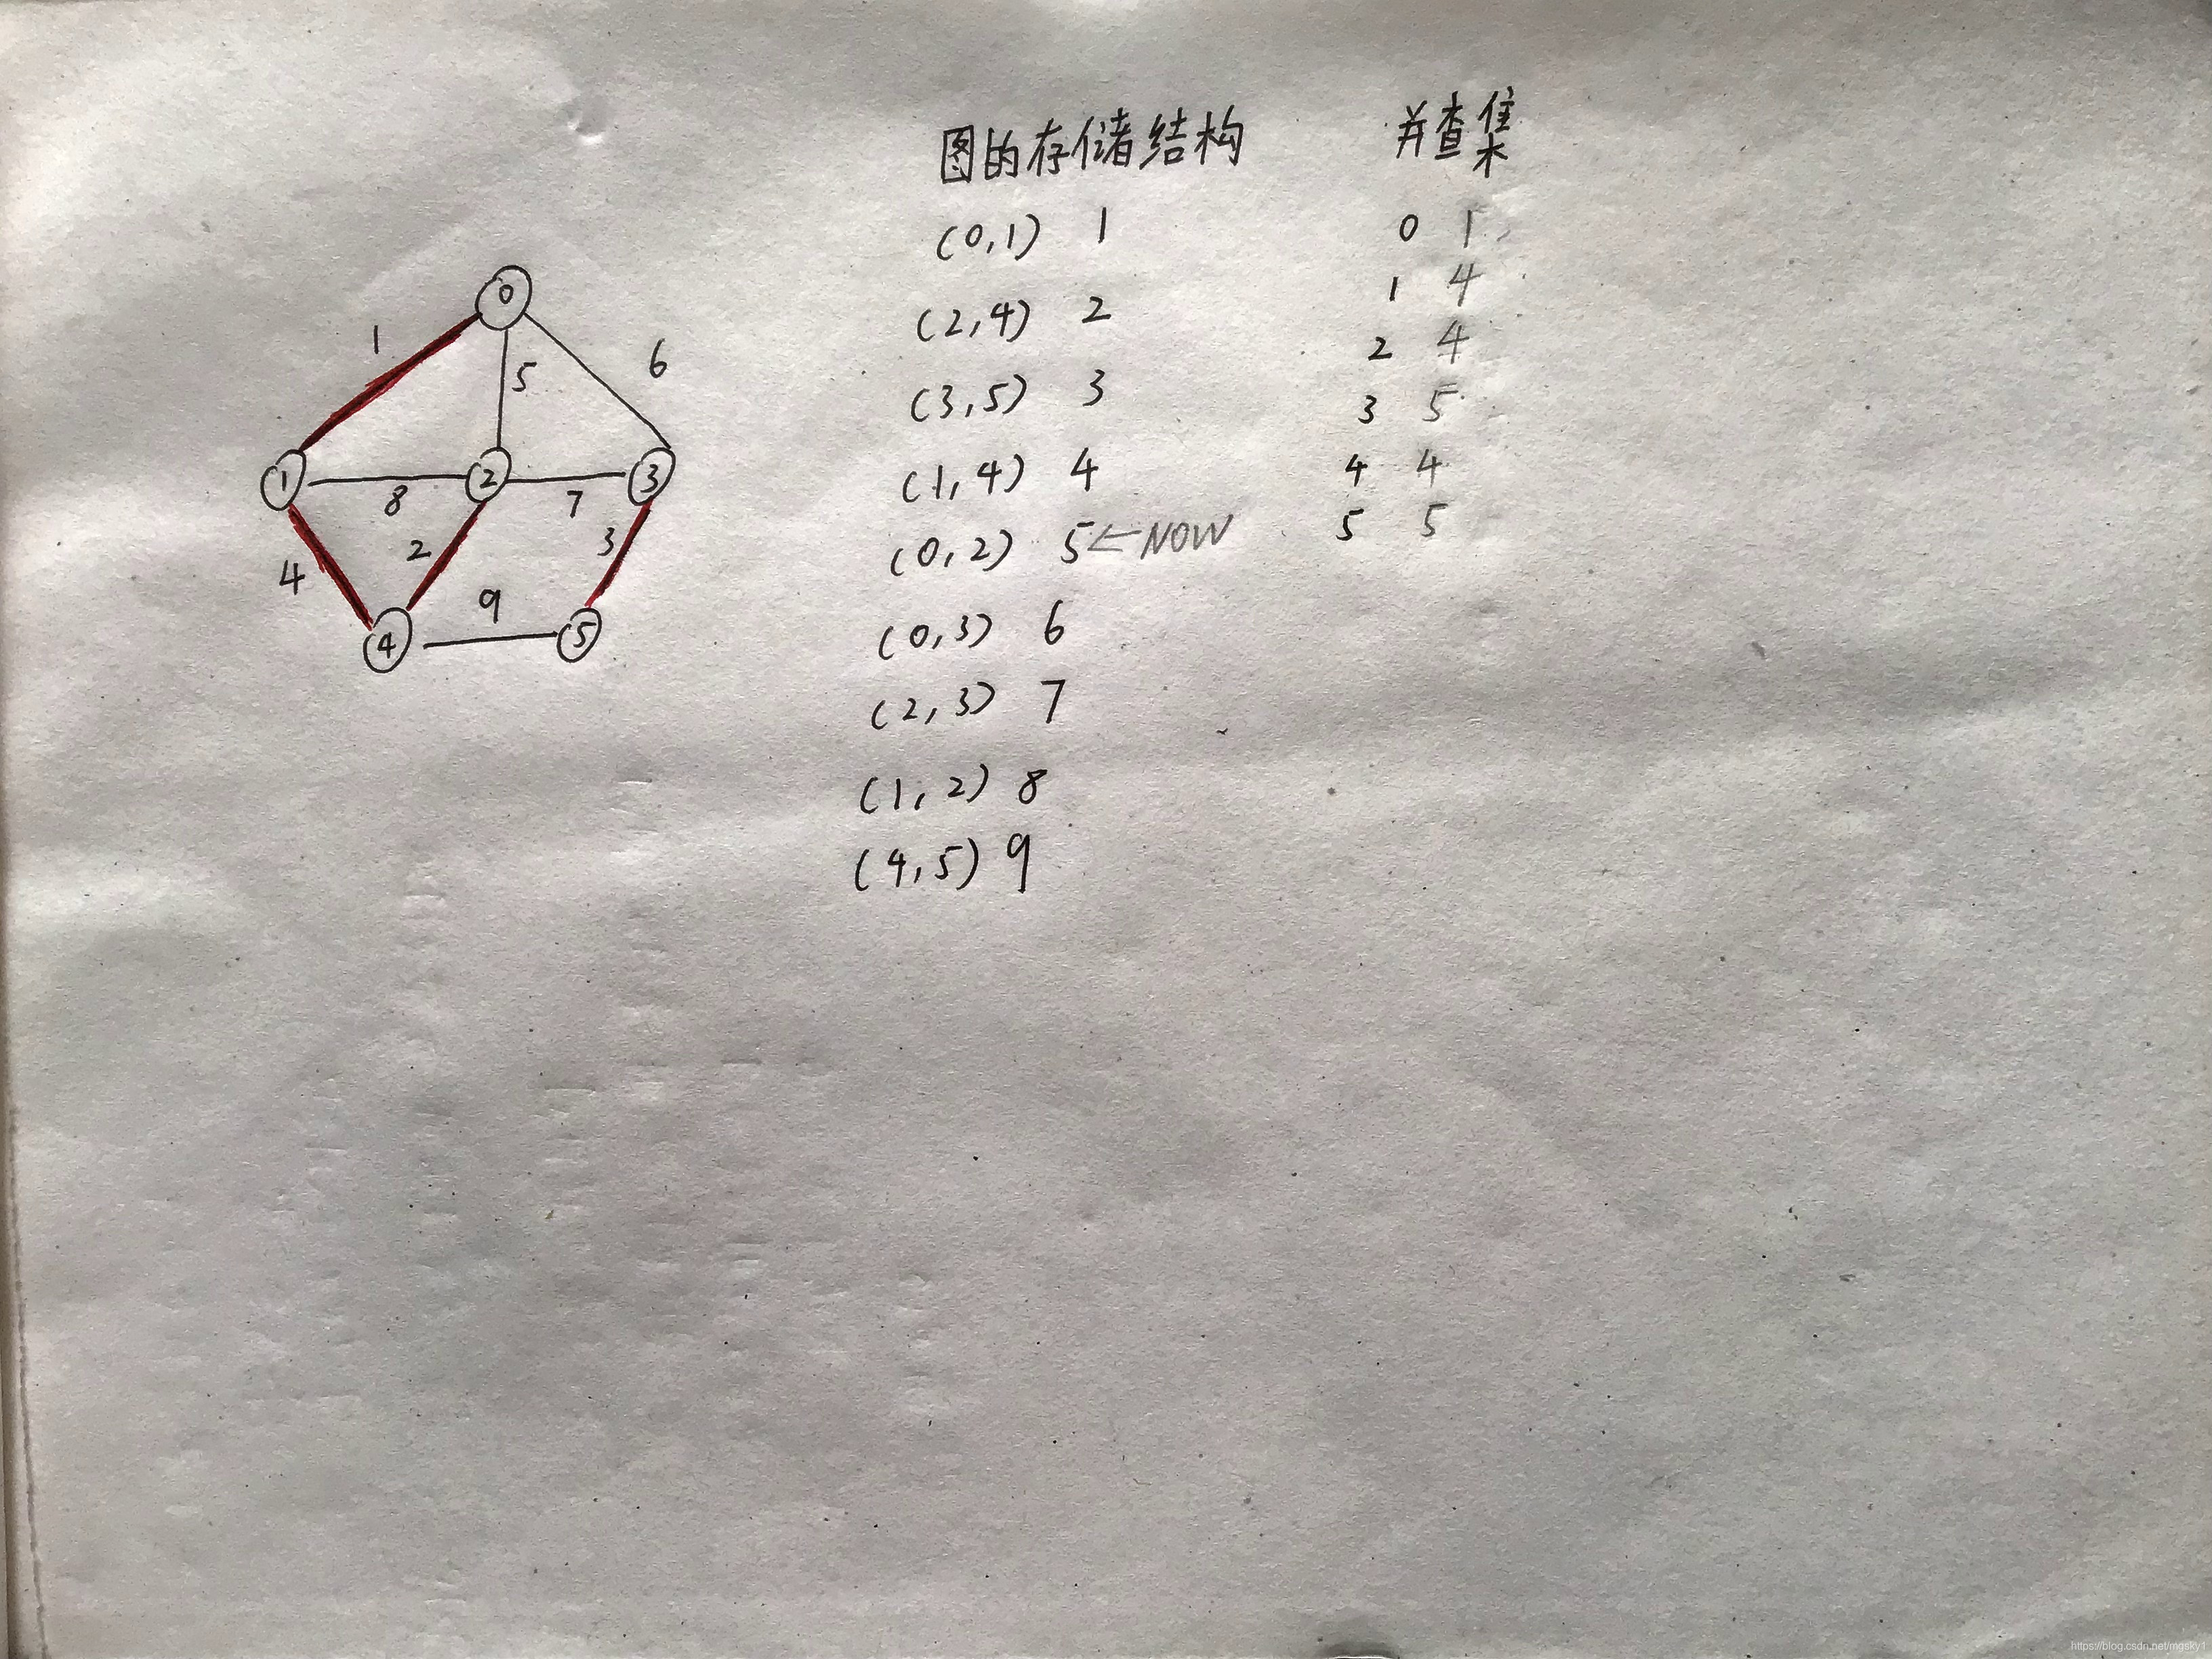 图的存储结构
(0,1) 1
(2,4) 2
(3,5) 3
(1,4) 4
(0,2) 5←NOW
(0,3) 6
(2,3) 7
(1,2) 8
(4,5) 9
并查集
0 1
1 4
2 4
3 5
4 4
5 5
0
1
5
6
1
8
2
7
3
4
2
3
9
4
5
https://blog.csdn.net/mgsky1